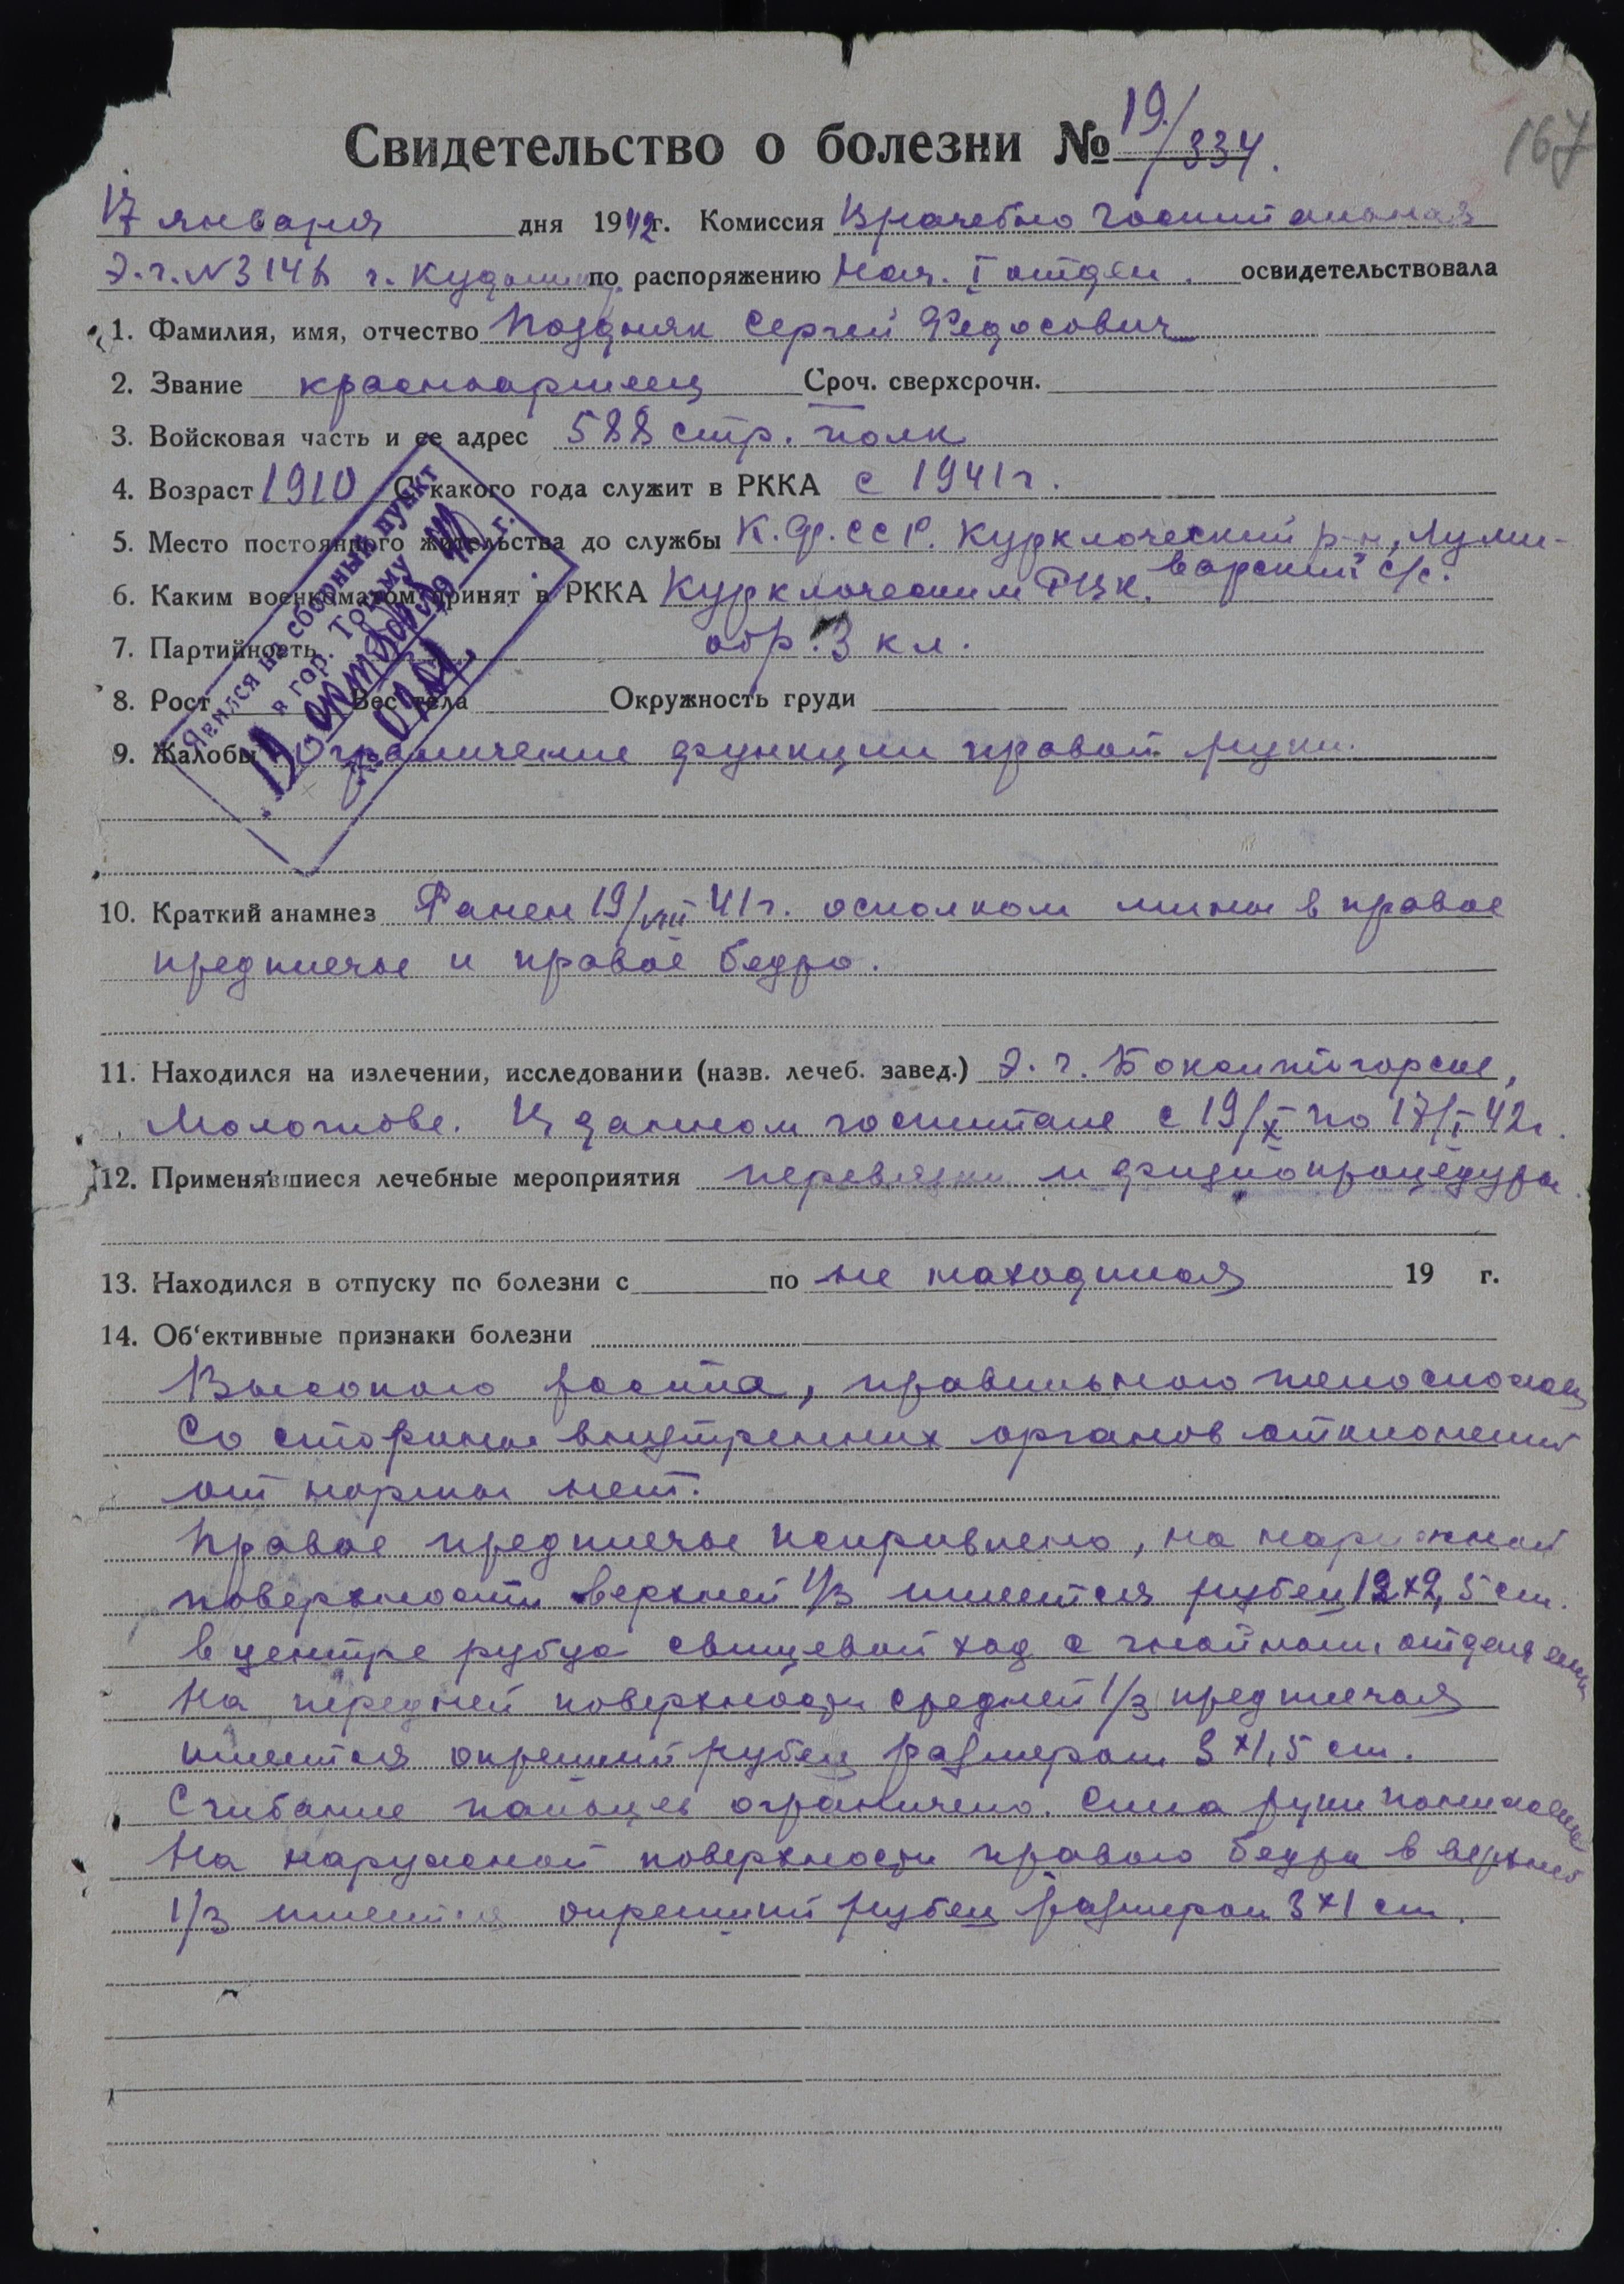 Свидетельство о болезни № 19/334.
167
17 января дня 1942г. Комиссия Врачебно госпитальная
Э.г. №3146 г. по распоряжению Нач. I отдел. освидетельствовала
1. Фамилия, имя, отчество Поздняк Сергей Федосович
2. Звание красноармеец Сроч. сверхсрочн.
3. Войсковая часть и ее адрес 588 стр. полк
4. Возраст 1910 С какого года служит в РККА с 1941г.
5. Место постоянного жительства до службы К.Ф.ССР. р-н,
6. Каким военкоматом принят в РККА РВК. с/с.
7. Партийность обр. 3 кл.
8. Рост Вес тела Окружность груди
9. Жалобы Ограничение функции правой руки.
Явился на сборный пункт
в гор. Тотьму
10. Краткий анамнез Ранен 19/VIII 41г. осколком мины в правое
предплечье и правое бедро.
11. Находился на излечении, исследовании (назв. леч. завед.) Э. г.
В данном госпитале с 19/X по 17/I 42г.
12. Применявшиеся лечебные мероприятия перевязки и физиопроцедуры.
13. Находился в отпуску по болезни с по не находился 19 г.
14. Об'ективные признаки болезни
Высокого роста, правильного телосложен
Со стороны внутренних органов отклонений
от нормы нет.
Правое предплечье искривлено, на наружной
поверхности верхней 1/3 имеется рубец 12×2,5 см.
в центре рубца свищевой ход с гнойным отделяемым
На передней поверхности средней 1/3 предплечья
имеется окрепший рубец размером 3×1,5 см.
Сгибание пальцев ограничено. Сила руки понижена
На наружной поверхности правого бедра в верхней
1/3 имеется окрепший рубец размером 3×1 см.